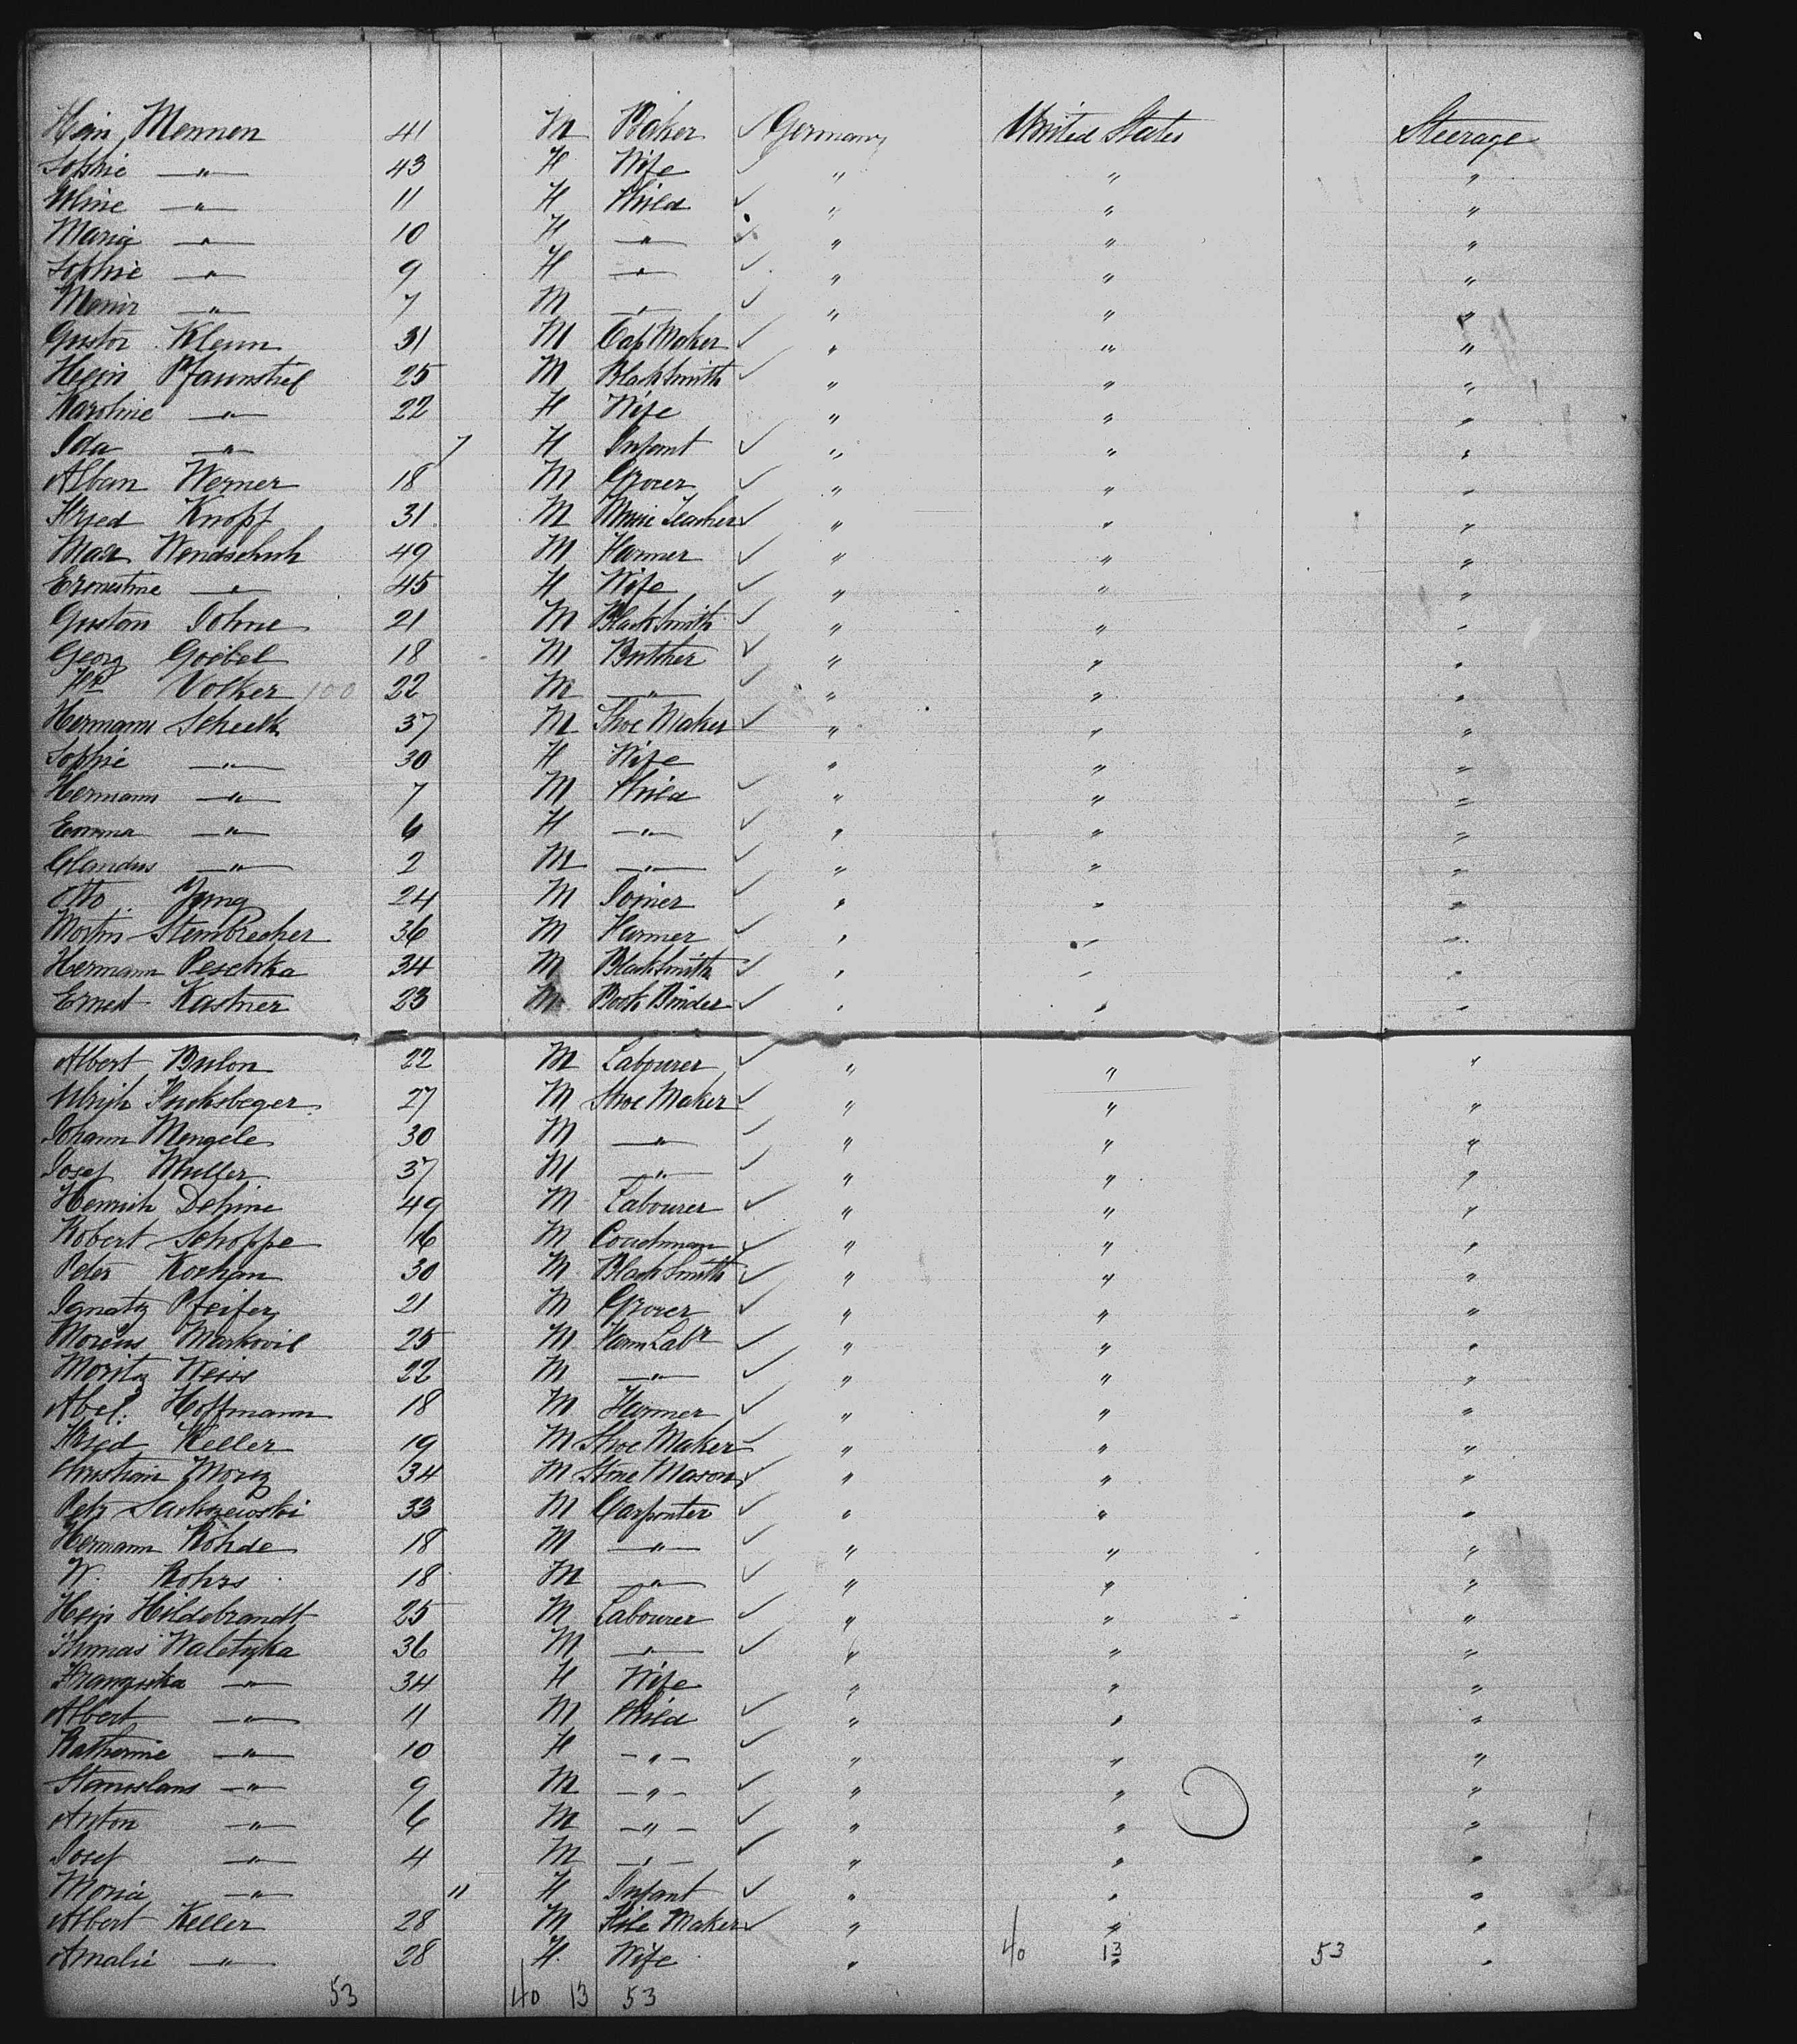 Hein Mennen 41 M Baker ✓ Germany United States Steerage
Sophie — " — 43 H Wife ✓ " " "
Mine — " — 11 H Child ✓ " " "
Maria — " — 10 H — " — ✓ " " "
Sophie — " — 9 H — " — ✓ " " "
7 M — " — ✓ " " "
Gustav Klemm 31 M Cap Maker ✓ " " "
Hein Pfannstiel 25 M BlackSmith ✓ " " "
Karoline — " — 22 H Wife " " "
Ida — " — 7 H Infant ✓ " " "
Alban Werner 18 M Grocer ✓ " " "
Fried Knopf 31 M Music Teacher ✓ " " "
Max Wendschuh 49 M Farmer ✓ " " "
Ernestine — " — 45 H Wife ✓ " " "
Gustav Dohne 21 M BlackSmith ✓ " " "
Georg Goebel 18 M Butcher ✓ " " "
Volker 100 22 M — " — ✓ " " "
Hermann Scheelk 37 M Shoe Maker ✓ " " "
Sophie — " — 30 H Wife " " "
Hermann — " — 7 M Child ✓ " " "
Emma — " — 6 H — " — ✓ " " "
Claudius — " — 2 M — " — ✓ " " "
Otto Jung 24 M Joiner ✓ " " "
Martin Steinbrecher 36 M Farmer ✓ " " "
Hermann Peschka 34 M BlackSmith ✓ " " "
Ernest Kastner 23 M Book Binder ✓ " " "
Albert Bulon 22 M Labourer ✓ " " "
Ulrich Fuchsbeger 27 M Shoe Maker ✓ " " "
Johann Mengele 30 M — " — ✓ " " "
Josef Muller 37 M — " — ✓ " " "
Heinrich Dehine 49 M Labourer ✓ " " "
Robert Schoppe 16 M Coachman ✓ " " "
Peter Kochan 30 M BlackSmith ✓ " " "
Ignatz Pfeifer 21 M Grocer ✓ " " "
Markovic 25 M Farm Labr ✓ " " "
Moritz Weiss 22 M — " — ✓ " " "
Abel. Hoffmann 18 M Farmer ✓ " " "
Fried Keller 19 M Shoe Maker ✓ " " "
Christian Morg 34 M Stone Mason ✓ " " "
Petr Sackszewski 33 M Carpenter ✓ " " "
Hermann Rohde 18 M — " — ✓ " " "
W. Rohrs 18 M — " — ✓ " " "
Hein Hildebrandt 25 M Labourer ✓ " " "
Thomas Waletzka 36 M — " — ✓ " " "
Franziska — " — 34 H Wife " " "
Albert — " — 11 M Child ✓ " " "
Katherine — " — 10 H — " — ✓ " " "
Stanislaus — " — 9 M — " — ✓ " " "
Anton — " — 6 M — " — ✓ " " "
Josef — " — 4 M — " — ✓ " " "
Maria — " — 11 H Infant ✓ " " "
Albert Keller 28 M File Maker ✓ " " "
Amalie — " — 28 H. Wife " 40 13 " 53 "
53 40 13 53